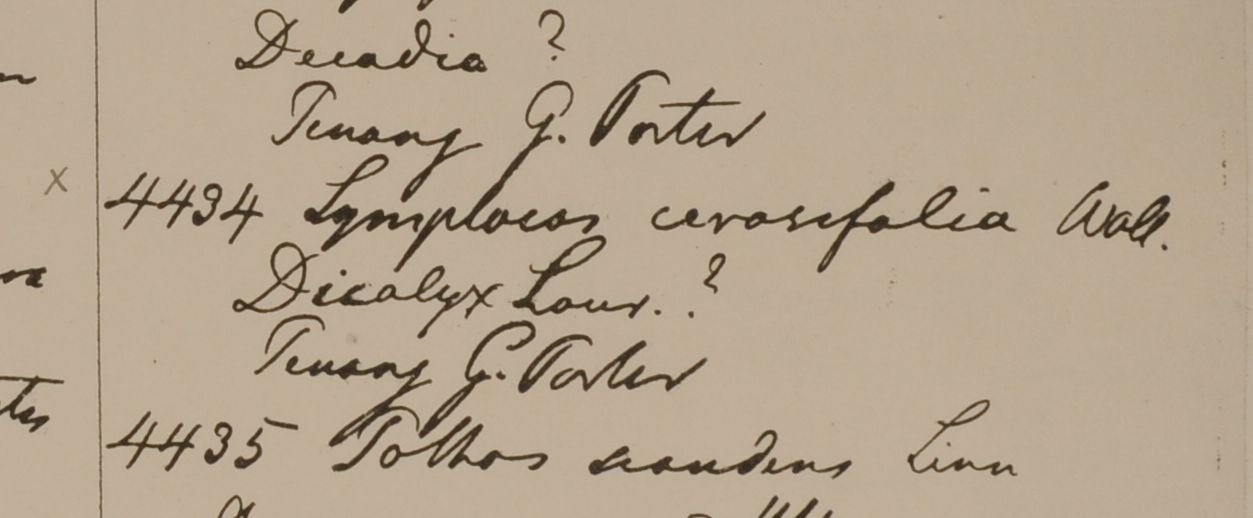 Decadia ?
Penang G. Porter
x
4434 Symplocos cerasifolia Wall.
Dicalyx Lour. ?
Penang G. Porter
4435 Pothos scandens Linn